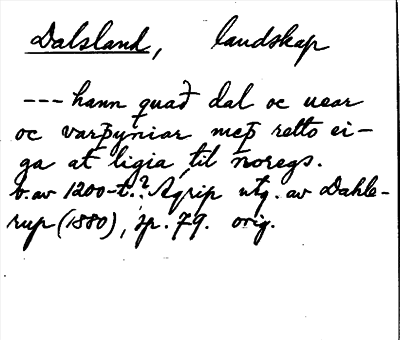 Dalsland, landskap
--- hann quað dal oc uear
oc varþyniar meþ retto ei-
ga at ligia til noregs.
b. av 1200-t.? Agrip utg. av Dahle-
rup (1880), sp. 79. orig.